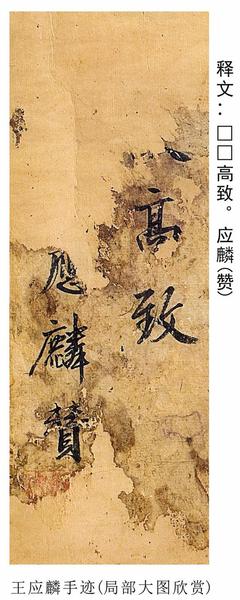 释文：□□高致。应麟（赞）
高致
应麟赞
王应麟手迹(局部大图欣赏)